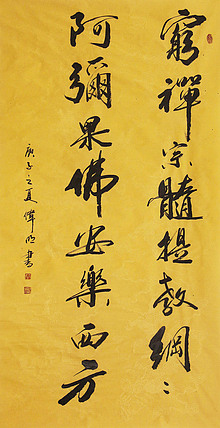 窮禪宗髓提教綱〻
阿彌果佛安樂西方
庚子之夏偉明書